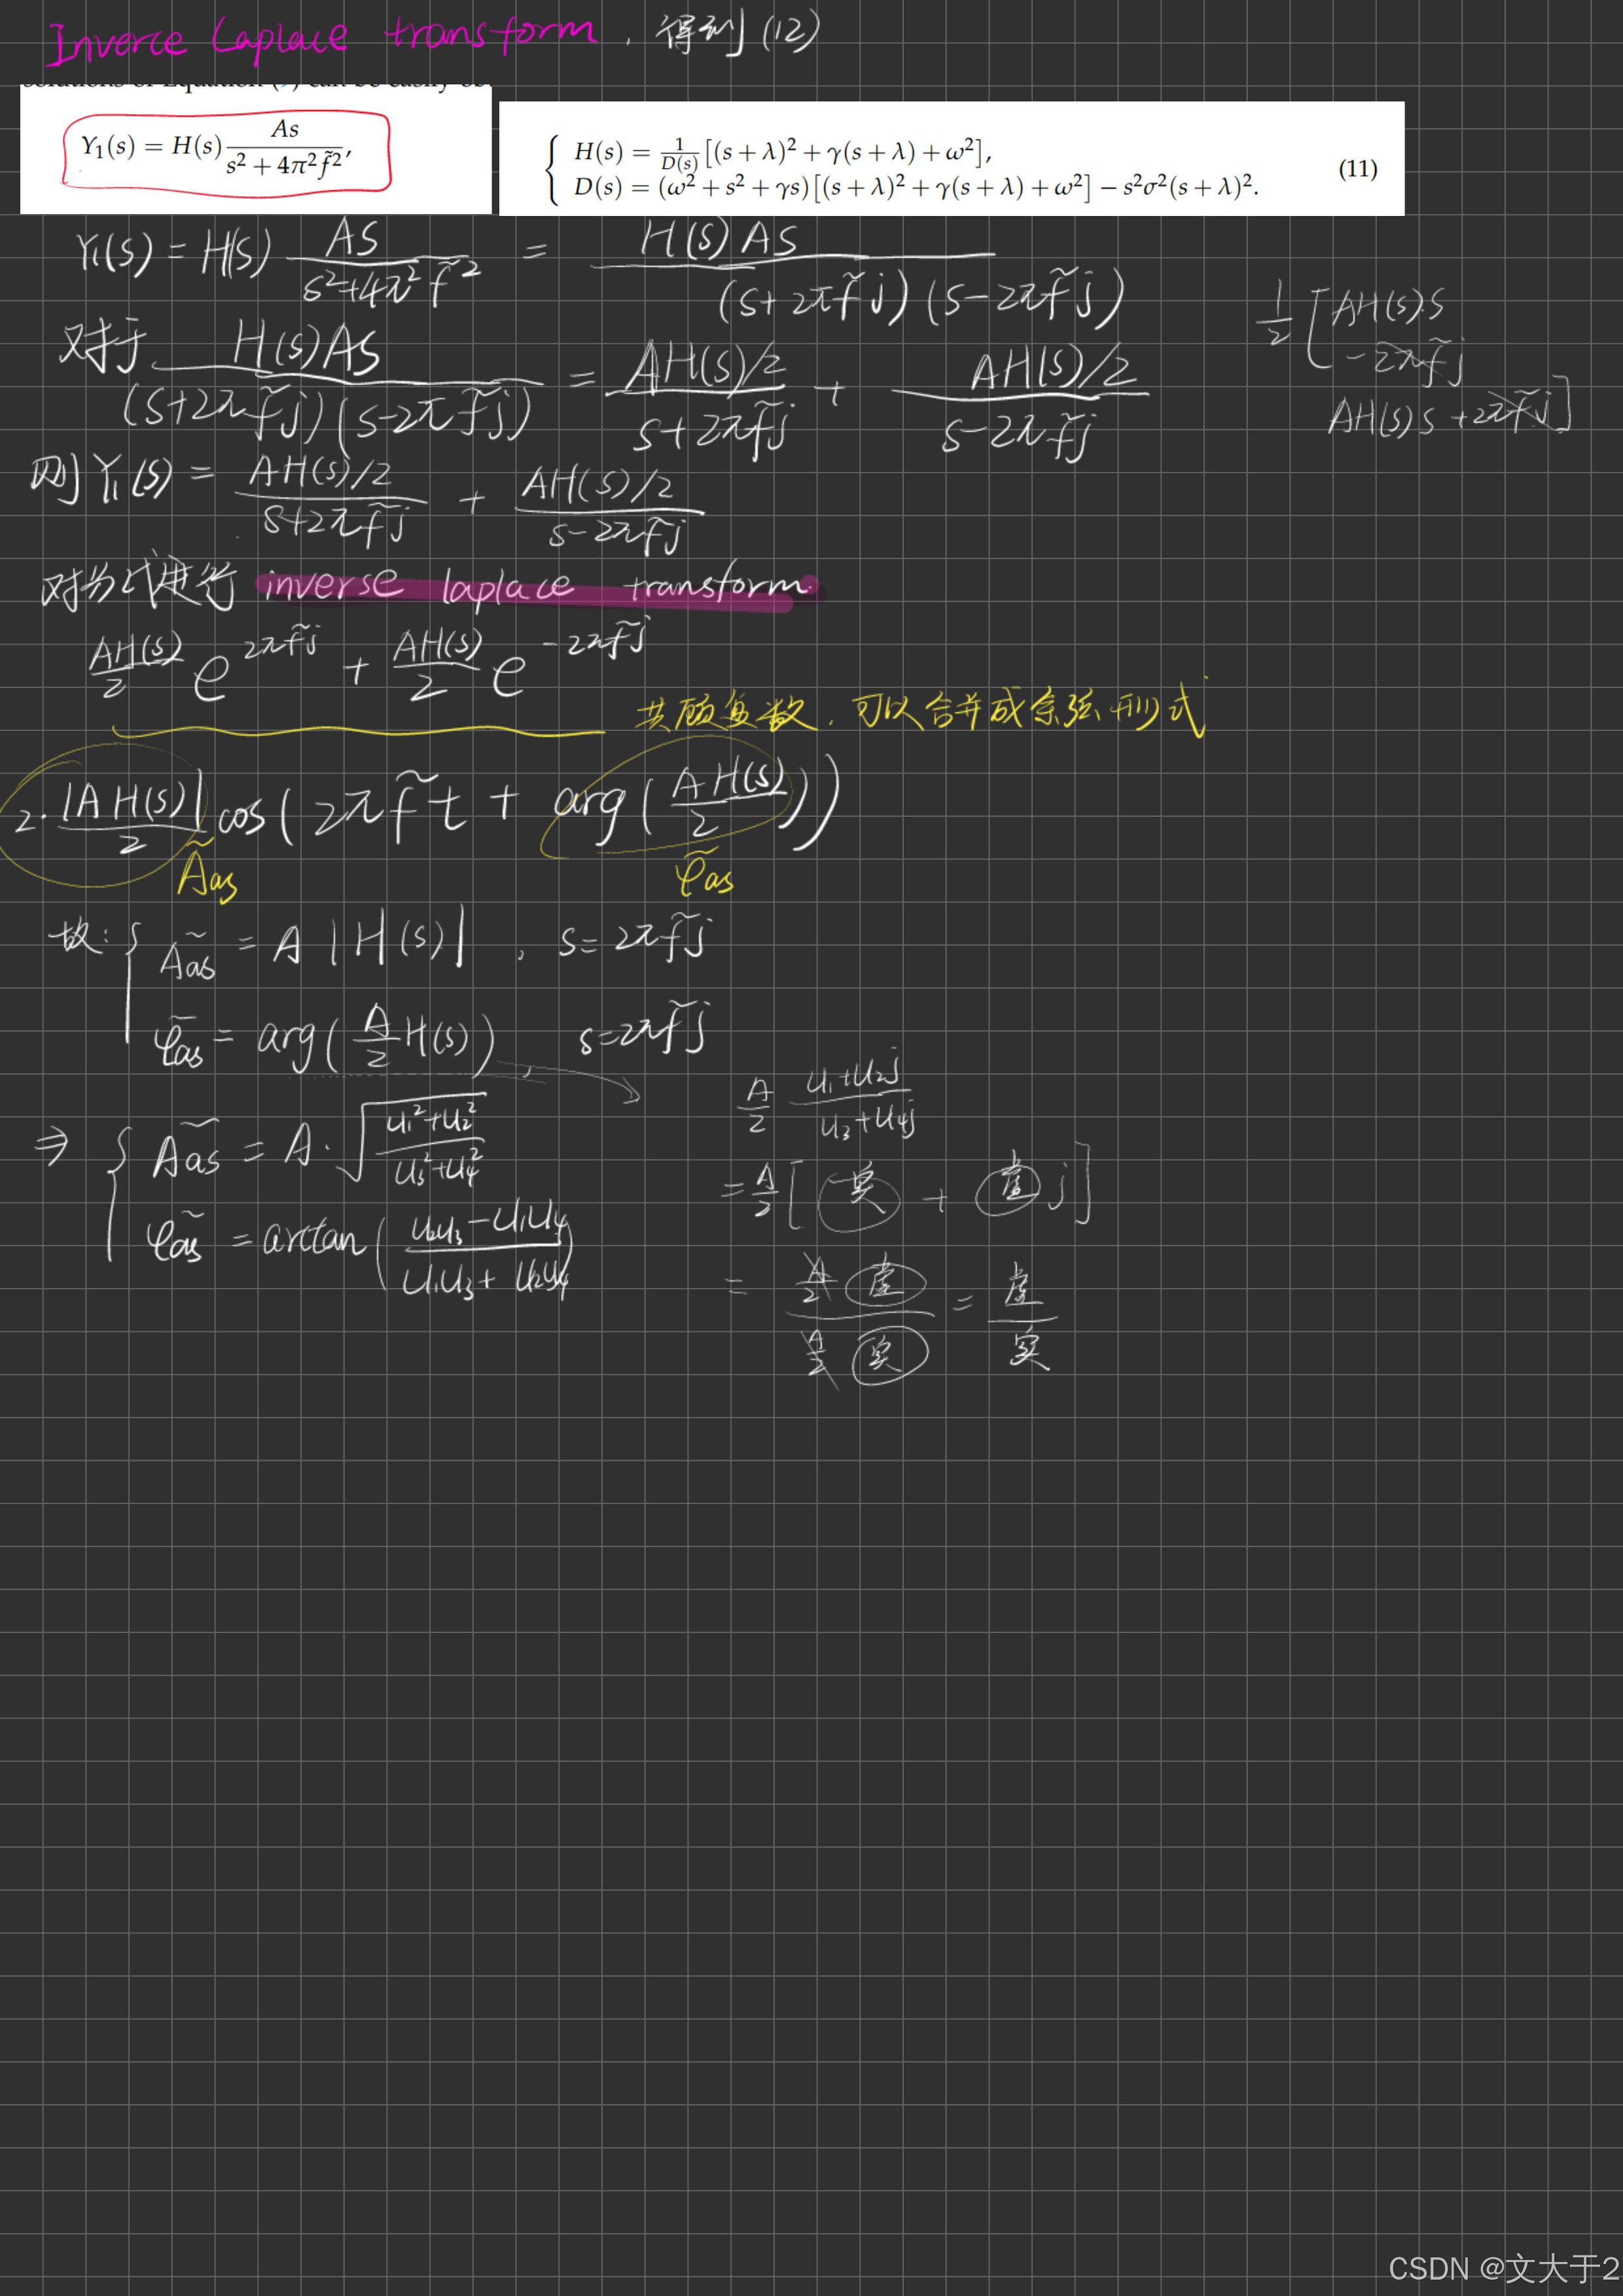 Inverce Laplace transform, 得到 (12)
Y₁(s) = H(s) As / (s² + 4π² f̃²),
{ H(s) = 1/D(s) [(s + λ)² + γ(s + λ) + ω²],
D(s) = (ω² + s² + γs)[(s + λ)² + γ(s + λ) + ω²] − s²σ²(s + λ)². (11)
Y₁(s) = H(s) AS / (s²+4π² f̃²) = H(s) AS / (s+2πf̃j)(s-2πf̃j)
1/2 [AH(s)·s
-2πf̃j
AH(s)s + 2πf̃j]
对于 H(s)AS / (s+2πf̃j)(s-2πf̃j) = AH(s)/2 / (s+2πf̃j) + AH(s)/2 / (s-2πf̃j)
则 Y₁(s) = AH(s)/2 / (s+2πf̃j) + AH(s)/2 / (s-2πf̃j)
进行 inverse laplace transform.
AH(s)/2 e^(2πf̃j) + AH(s)/2 e^(-2πf̃j)
复数, 可以合并成余弦形式
2·|AH(s)|/2 cos(2πf̃t + arg(AH(s)/2))
Ãas φ̃as
故: { Ãas = A|H(s)|, s = 2πf̃j
φ̃as = arg(A/2 H(s)), s=2πf̃j
A/2 (u₁+u₂j)/(u₃+u₄j)
⇒ { Ãas = A·√((u₁²+u₂²)/(u₃²+u₄²))
= A/2 [实 + 虚 j]
φ̃as = arctan((u₂u₃-u₁u₄)/(u₁u₃+u₂u₄))
= (A/2 虚)/(A/2 实) = 虚/实
CSDN @文大于2